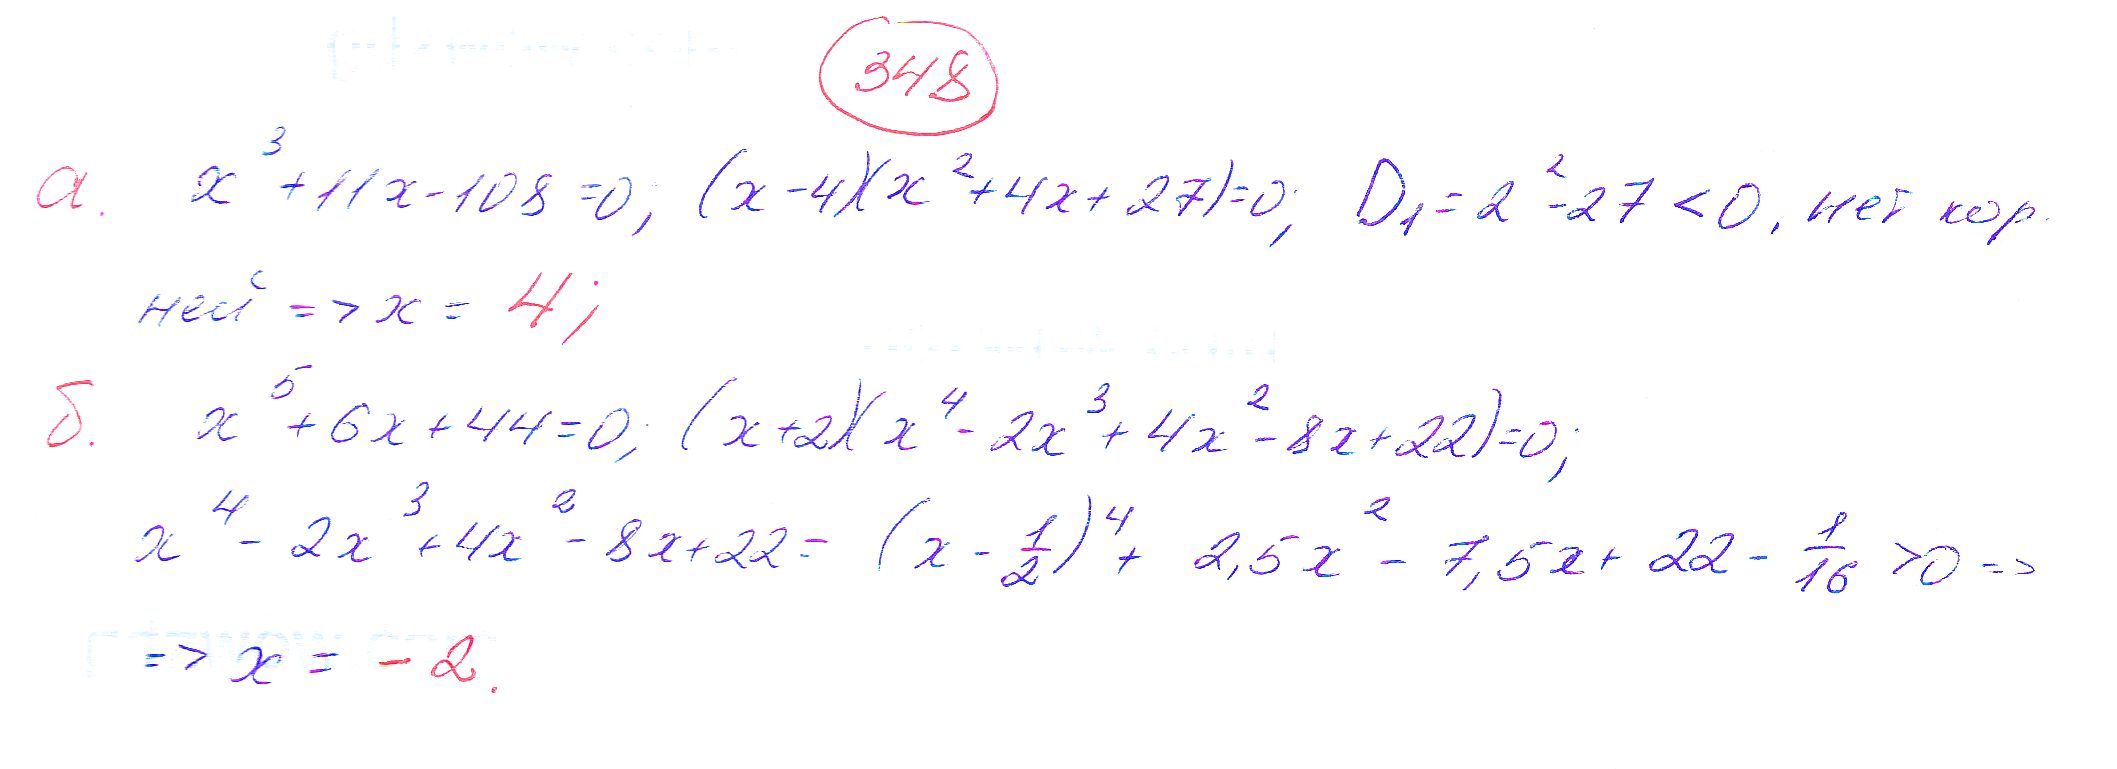 348
а. x³+11x-108=0; (x-4)(x²+4x+27)=0; D₁=2²-27<0, нет кор-
ней => x = 4;
б. x⁵+6x+44=0; (x+2)(x⁴-2x³+4x²-8x+22)=0;
x⁴-2x³+4x²-8x+22= (x-1/2)⁴+ 2,5x²-7,5x+22-1/16>0 =>
=> x = -2.